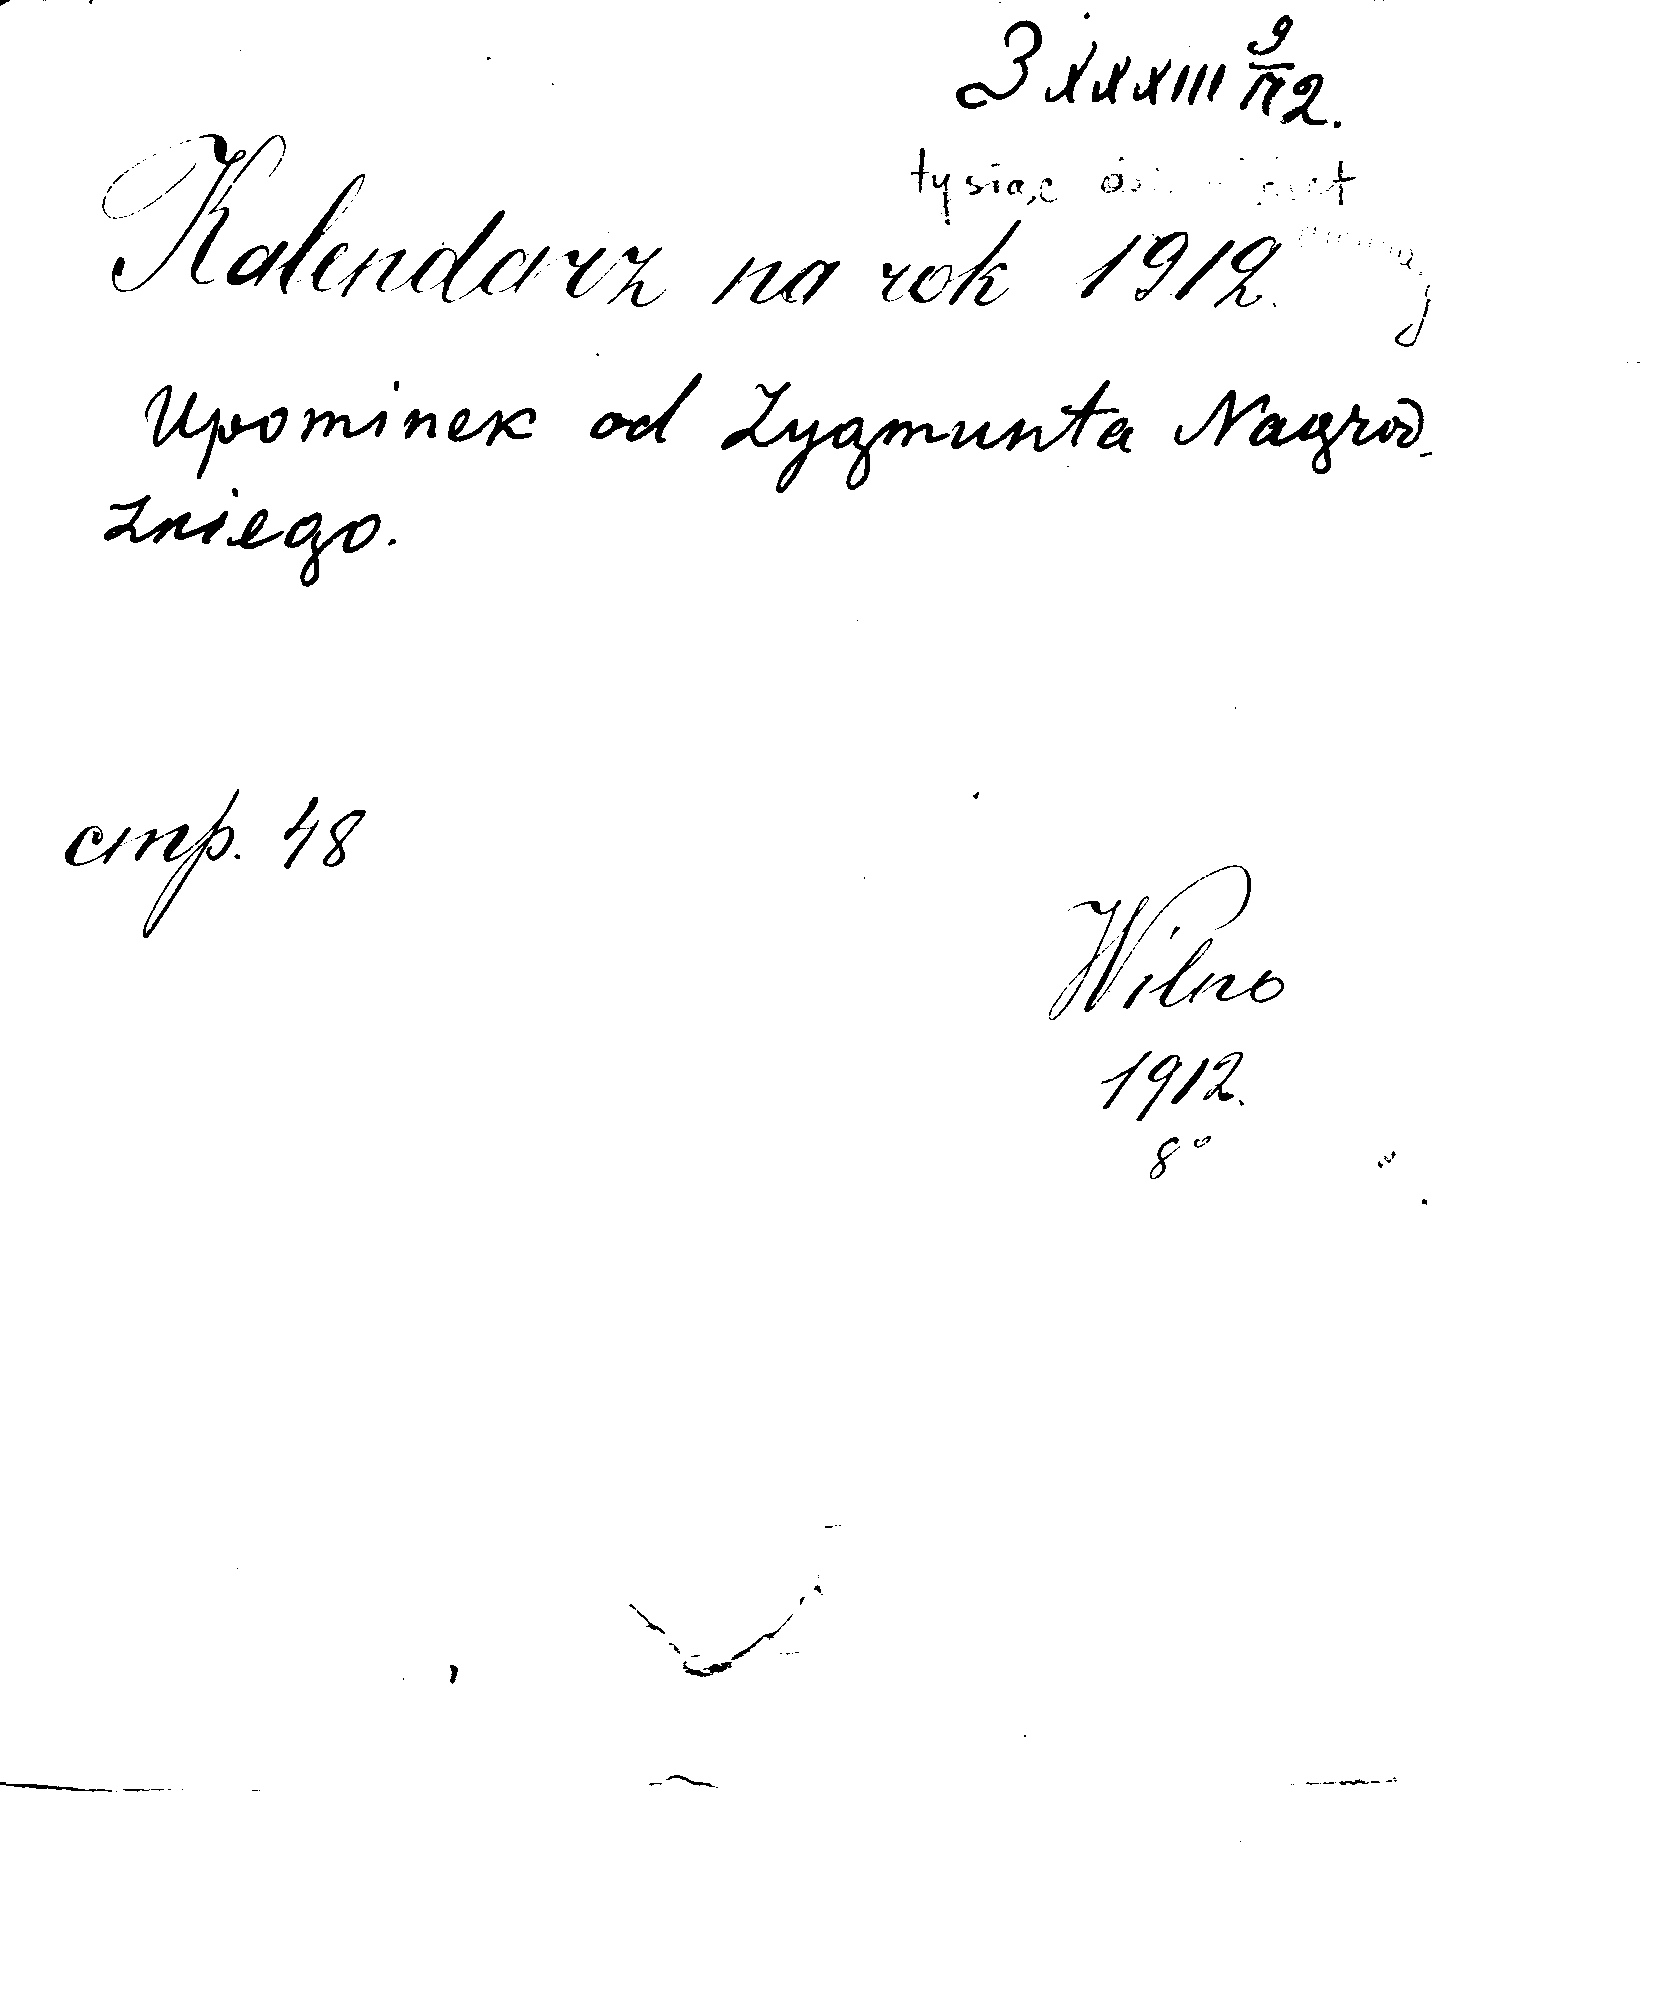 3 XXXIII 9/II 2.
tysiąc
Kalendarz na rok 1912.
Upominek od Zygmunta Nagrod-
zkiego.
стр. 48
Wilno
1912.
8°